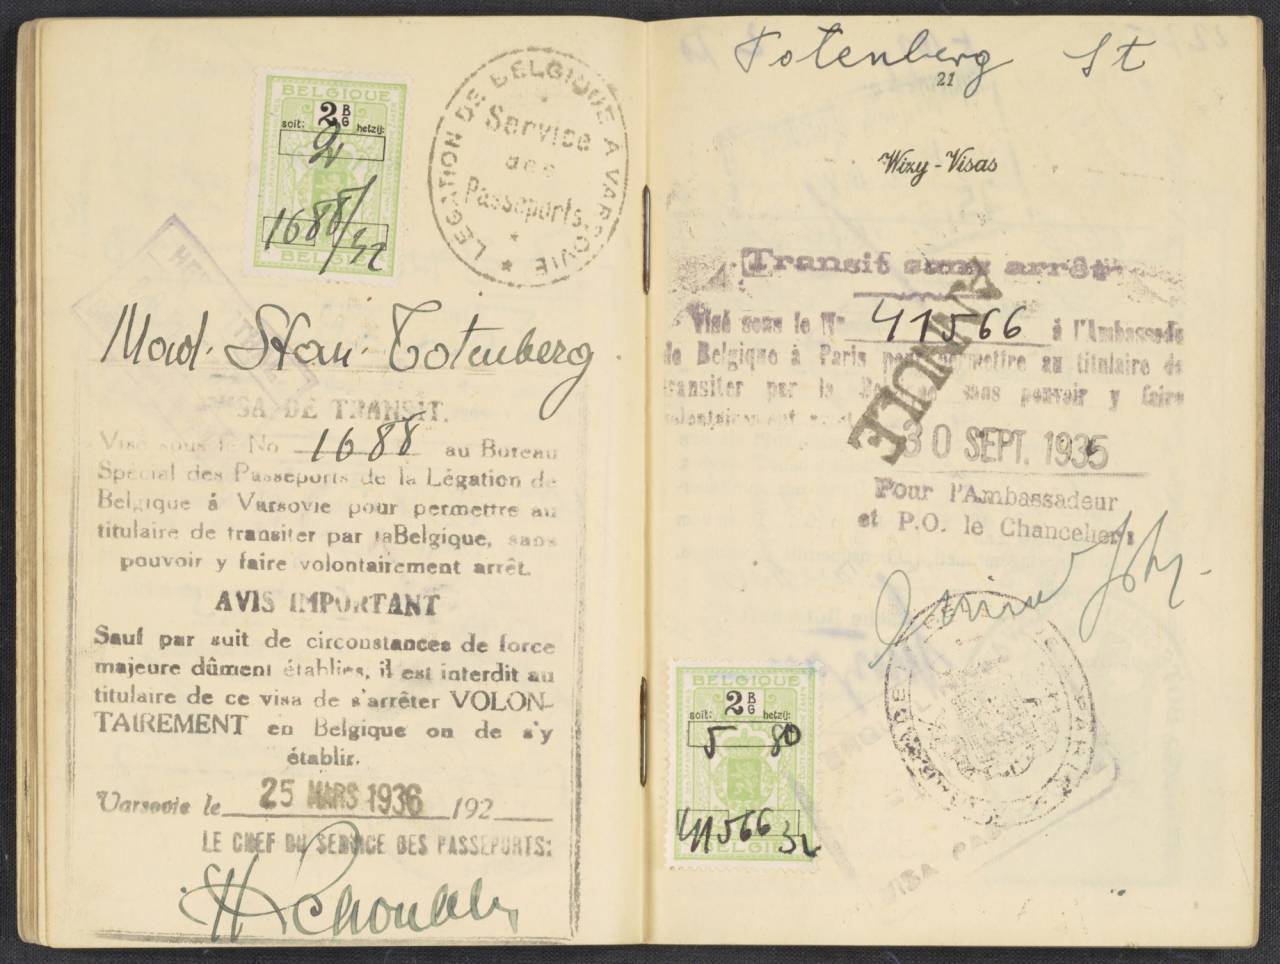 BELGIQUE
2 B
G
soit: hetzij:
2
1688/32
BELGIE
LEGATION DE BELGIQUE A VARSOVIE
Service
des
Passeports
Mad. Stan. Totenberg.
VISA DE TRANSIT.
Visé sous le No 1688 au Bureau
Spécial des Passeports de la Légation de
Belgique á Varsovie pour permettre au
titulaire de transiter par laBelgique, sans
pouvoir y faire volontairement arrêt.
AVIS IMPORTANT
Sauf par suit de circonstances de force
majeure dûment établies, il est interdit au
titulaire de ce visa de s'arrêter VOLON-
TAIREMENT en Belgique ou de s'y
établir.
Varsovie le 25 MARS 1936 192
LE CHEF DU SERVICE DES PASSEPORTS:
Totenberg St
21
Wizy - Visas
Transit sans arrêt
ANNULÉ
Visé sous le No 41566 à l'Ambassade
de Belgique à Paris pour permettre au titulaire de
transiter par la Belgique sans pouvoir y faire
volontairement arrêt
30 SEPT. 1935
Pour l'Ambassadeur
et P.O. le Chancelier:
BELGIQUE
2 B
G
soit: hetzij:
5 80
41566 32
BELGIE
VISA